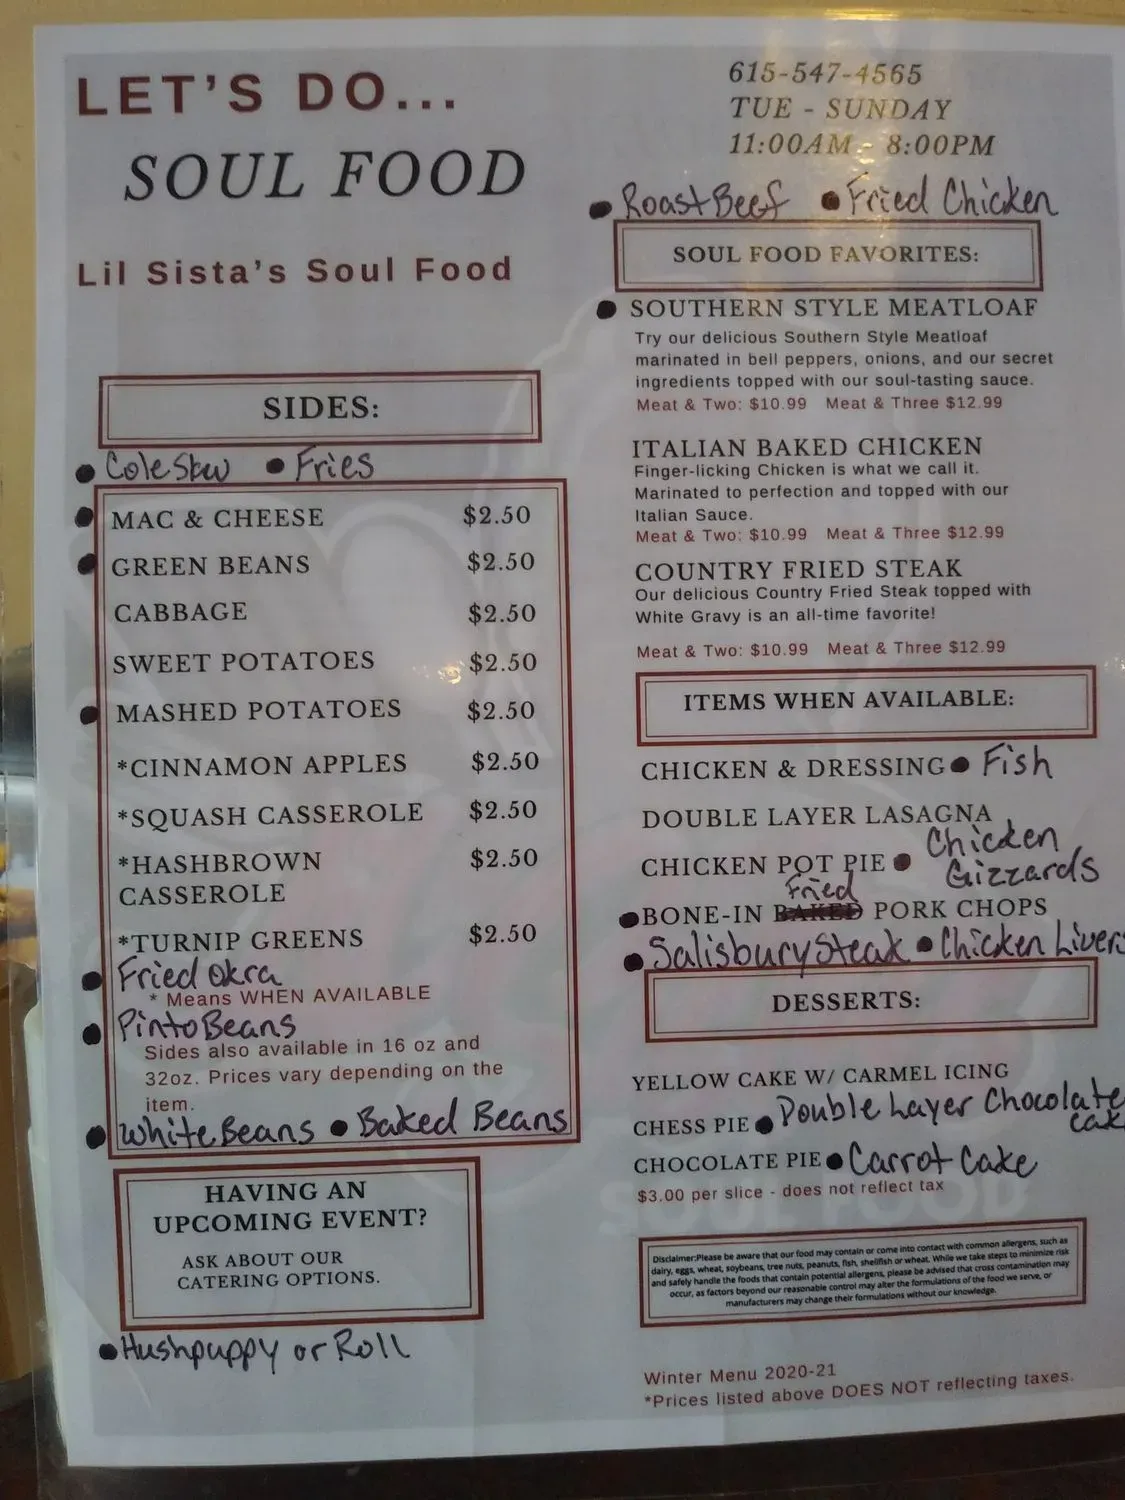 LET'S DO...
SOUL FOOD
Lil Sista's Soul Food
SIDES:
• Coleslaw • Fries
• MAC & CHEESE $2.50
• GREEN BEANS $2.50
CABBAGE $2.50
SWEET POTATOES $2.50
• MASHED POTATOES $2.50
*CINNAMON APPLES $2.50
*SQUASH CASSEROLE $2.50
*HASHBROWN $2.50
CASSEROLE
*TURNIP GREENS $2.50
• Fried Okra
* Means WHEN AVAILABLE
• Pinto Beans
Sides also available in 16 oz and
32oz. Prices vary depending on the
item.
• White Beans • Baked Beans
HAVING AN
UPCOMING EVENT?
ASK ABOUT OUR
CATERING OPTIONS.
• Hushpuppy or Roll
615-547-4565
TUE - SUNDAY
11:00AM - 8:00PM
• Roast Beef • Fried Chicken
SOUL FOOD FAVORITES:
• SOUTHERN STYLE MEATLOAF
Try our delicious Southern Style Meatloaf
marinated in bell peppers, onions, and our secret
ingredients topped with our soul-tasting sauce.
Meat & Two: $10.99 Meat & Three $12.99
ITALIAN BAKED CHICKEN
Finger-licking Chicken is what we call it.
Marinated to perfection and topped with our
Italian Sauce.
Meat & Two: $10.99 Meat & Three $12.99
COUNTRY FRIED STEAK
Our delicious Country Fried Steak topped with
White Gravy is an all-time favorite!
Meat & Two: $10.99 Meat & Three $12.99
ITEMS WHEN AVAILABLE:
CHICKEN & DRESSING • Fish
DOUBLE LAYER LASAGNA
CHICKEN POT PIE • Chicken
Gizzards
Fried
• BONE-IN BAKED PORK CHOPS
• Salisbury Steak • Chicken Livers
DESSERTS:
YELLOW CAKE W/ CARMEL ICING
CHESS PIE • Double Layer Chocolate
Cake
CHOCOLATE PIE • Carrot Cake
$3.00 per slice - does not reflect tax
SOUL FOOD
Disclaimer:Please be aware that our food may contain or come into contact with common allergens, such as
dairy, eggs, wheat, soybeans, tree nuts, peanuts, fish, shellfish or wheat. While we take steps to minimize risk
and safely handle the foods that contain potential allergens, please be advised that cross contamination may
occur, as factors beyond our reasonable control may alter the formulations of the food we serve, or
manufacturers may change their formulations without our knowledge.
Winter Menu 2020-21
*Prices listed above DOES NOT reflecting taxes.